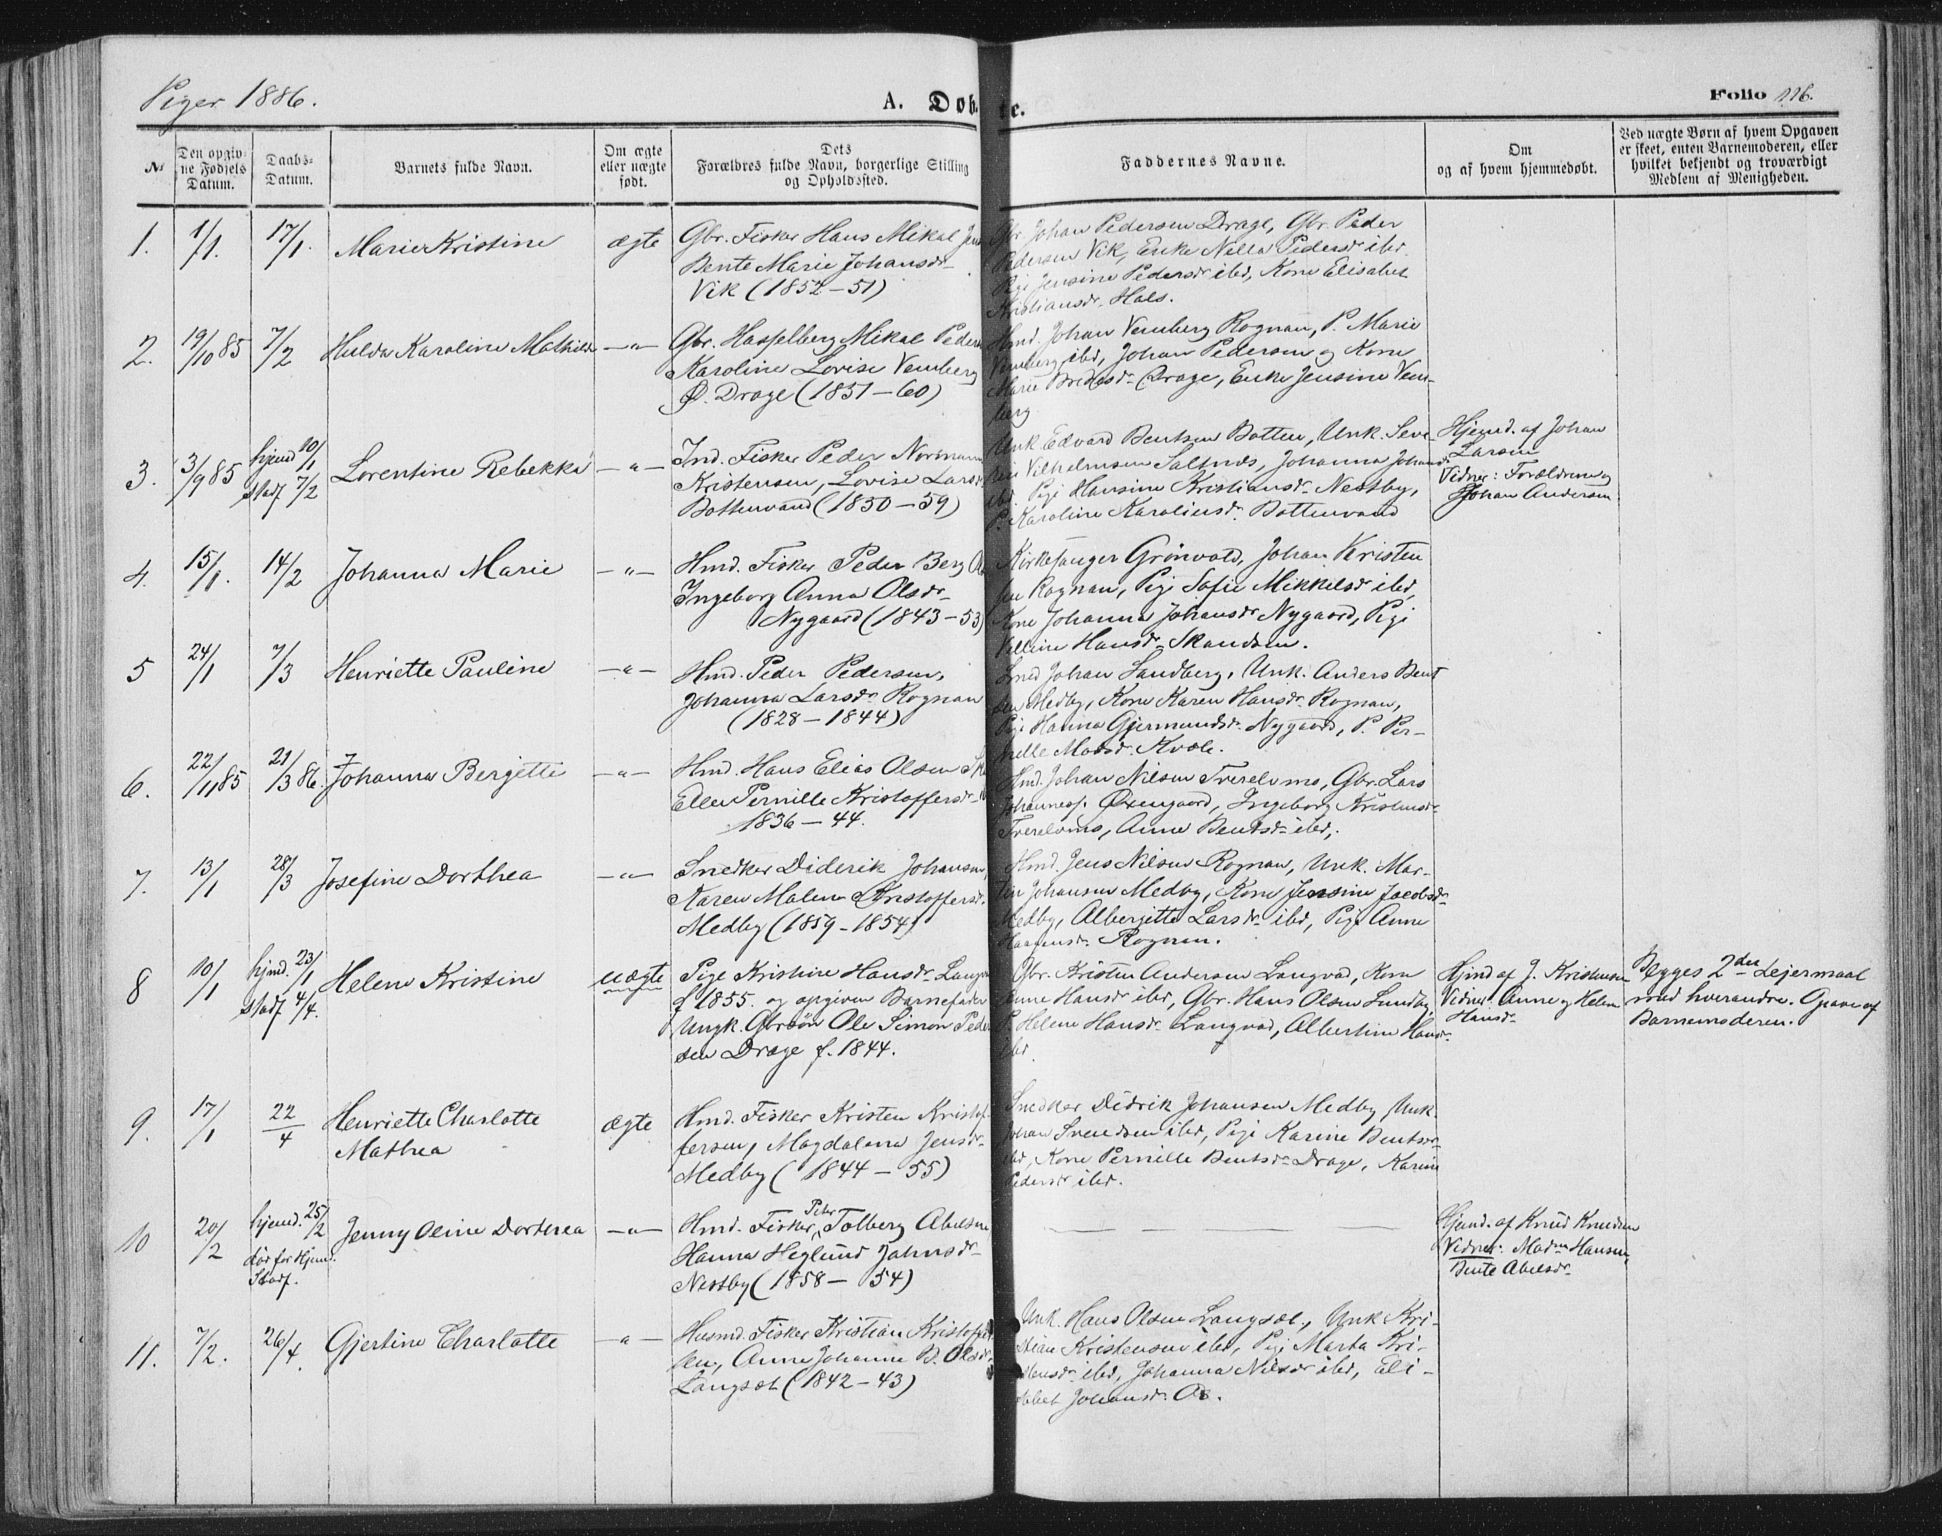 Piger 1886.
A. Døbte.
Folio 116.
No
Den opgivne Fødsels Datum.
Daabs-Datum.
Barnets fulde Navn.
Om ægte eller uægte født.
Dets Forældres fulde Navn, borgerlige Stilling og Opholdssted.
Faddernes Navne.
Om og af hvem hjemmedøbt.
Ved uægte Børn af hvem Opgaven er skeet, enten Barnemoderen, eller hvilket bekjendt og troværdigt Medlem af Menigheden.
1. 1/1. 17/1. Marie Kristine ægte
Gbr. Fisker Hans Mikal
Bente Marie Johansdr
Vik (1852-51)
Gbr. Johan Pedersen Drage, Gbr. Peder
Pedersen Vik, Enke Nella Pedersdr ibd.
Pige Jensine Pedersdr ibd, Kone Elisabet
Kristiansdr. Hals.
2. 19/10 85 7/2 Hulda Karoline Mathilde -"-
Gbr. Hasselberg Mikal Peders
Karoline Lovise Vemberg
Ø. Drage (1851-60)
Hmd. Johan Vemberg Rognan, P. Marie
Vemberg ibd, Johan Pedersen og Kone
Marie Drage, Enke Jensine Vem-
berg
3. 3/9 85 hjemd 10/1 stadf 7/2 Lorentine Rebekka -"-
Ind. Fisker Peder Normann
Kristensen, Lovise Larsdr
Bottenvand (1850-59)
Unk Edvard Bentsen Botten, Unk. Seve-
Vilhelmsen Saltnes, Johanna Johansdr
ibd. Pige Hansine Kristiansdr Nestby,
P. Karoline Karoliusdr. Bottenvand
Hjemd. af Johan
Larsen
Vidner: Forældrene og
Johan Andersen
4. 15/1. 14/2 Johanna Marie -"-
Hmd. Fisker Peder Berg
Ingeborg Anna Olsdr
Nygaard (1843-53)
Kirkesanger Grönvold, Johan Kristen
sen Rognan, Pige Sofie Mikkelsdr ibd,
Kone Johanna Johansdr Nygaard, Pige
Hansdr Skandsen.
5 24/1 7/3 Henriette Pauline -"-
Hmd. Peder Pedersen,
Johanna Larsdr Rognan
(1828-1844)
Smed Johan Sandberg, Unk. Anders Bent
sen Medby, Kone Karen Hansdr Rognan,
Pige Hanna Gjermundsdr Nygaard, P. Per-
nelle Madsdr. Kvæle.
6. 22/11 85 21/3 86. Johanna Bergette -"-
Hmd. Hans Elias Olsen
Ellen Pernille Kristoffersdr
1836-44.
Hmd. Johan Nilsen Tverelvmo, Gbr. Lars
Johanness. Øxengaard, Ingeborg Kristensdr
Tverelvmo, Anne Bentsdr ibd,.
7. 13/1 28/3 Josefine Dorthea -"-
Snedker Diderik Johansen,
Karen Malene Kristoffersdr.
Medby (1859-1854)
Hmd. Jens Nilsen Rognan, Unk. Mar-
tin Johansen Medby, Kone Jensine Jacobsdr
Medby, Albergitte Larsdr ibd, Pige Anne
Haagensdr. Rognan.
8 10/1 hjmd. 23/1 stadf 4/4. Helene Kristine uægte
Pige Kristine Hansdr Langvad
f 1855. og opgiven Barnefader
Ungk. Gbrsön Ole Simon Peder
sen Drage f. 1844.
Gbr. Kristen Andersen Langvad, Kone
Anne Hansdr ibd, Gbr. Hans Olsen Lundby,
P. Helene Hansdr. Langvad, Albertine Hansdr
ibd.
Hjmd af J. Kristensen
Vidner: Anne og Helene
Hansdr
Begges 2den Lejermaal
med hverandre. Opgave af
Barnemoderen.
9. 17/1 22/4 Henriette Charlotte
Mathea ægte
Hmd. Fisker Kristen Kristof-
fersen, Magdalena Jensdr
Medby (1844-55)
Snedker Didrik Johansen Medby, Unk.
Johan Svendsen ibd, Pige Karine Bentsdr
ibd, Kone Pernille Bentsdr Drage, Karine
Pedersdr ibd.
10 20/2 hjemd. 25/2 død før Hjemd. Stadf. Jenny Oline Dorthea -"-
Hmd. Fisker Peter Tolberg Abelsen
Hanna Heglund Johnsdr
Nestby (1858-54)
Hjemd. af Knud Knudsen
Vidner: Madm Hansen,
Bente Abelsdr
11. 7/2. 26/4 Gjertine Charlotte -"-
Husmd. Fisker Kristian Kristoffer
sen, Anne Johanne B. Olsdr.
Langset (1842-43)
Unk. Hans Olsen Langset, Unk Kri-
stian Kristensen ibd, Pige Marta Kri-
stensdr ibd, Johanna Nilsdr ibd, Eli-
sabet Johansdr.